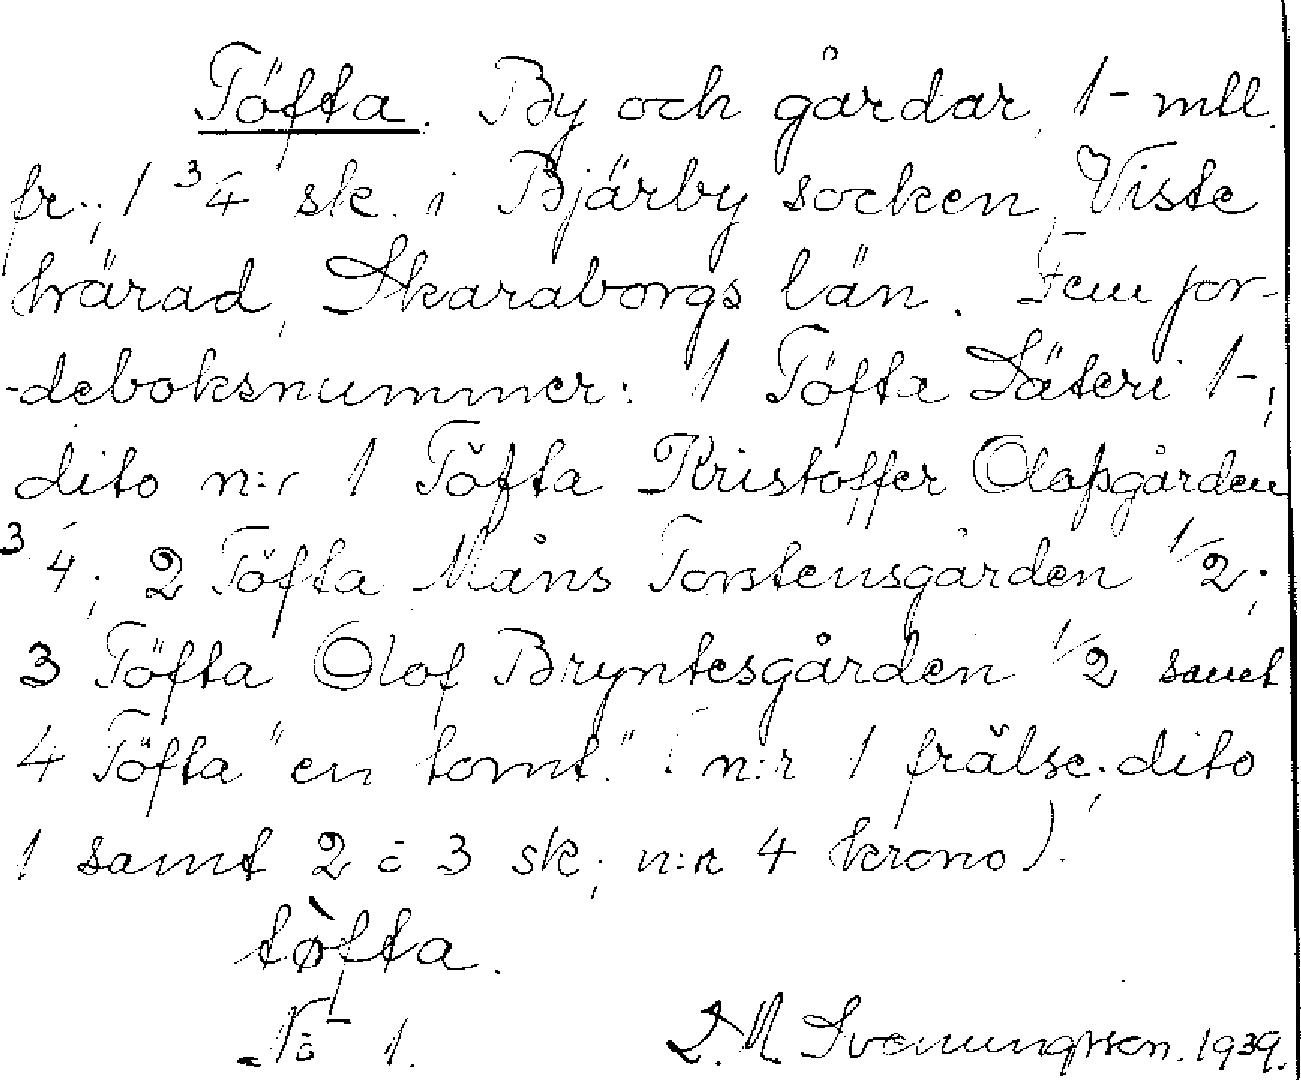 Töfta. By och gårdar, 1 - mtl.
fr.; 1 3/4 sk. i Bjärby socken, Viste
härad, Skaraborgs län. Fem jor-
-deboksnummer: 1 Töfta Säteri 1-;
dito n:r 1 Töfta Kristoffer Olofsgården
3/4; 2 Töfta Måns Torstensgården 1/2;
3 Töfta Olof Bryntesgården 1/2 samt
4 Töfta "en tomt." (n:r 1 frälse; dito
1 samt 2 à 3 sk; n:r 4 krono).
tøfta.
1.
Svenungsson. 1939.